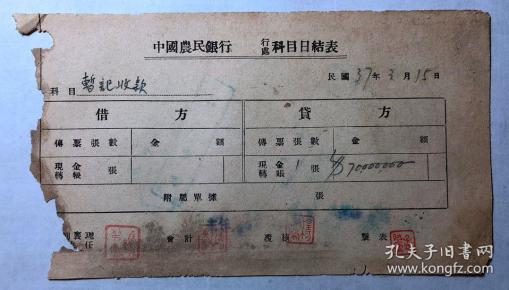 中國農民銀行 行處 科目日結表
民國 37 年 3 月 15 日
科目 暫記收款
借方 貸方
傳票張數 金額 傳票張數 金額
現金轉帳 張 現金轉賬 1 張 $70000000
附屬單據 張
襄理 主任 會計 覆核 製表
孔夫子旧书网
www.kongfz.com